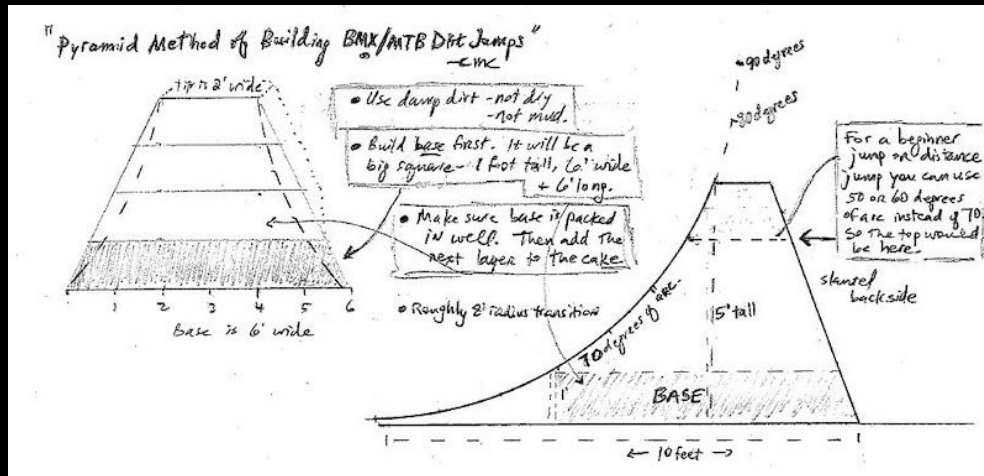 "Pyramid Method of Building BMX/MTB Dirt Jumps"
-CMC
tip is 2' wide
• Use damp dirt - not dry
- not mud.
• Build base first. It will be a
big square - 1 foot tall, 6' wide
+ 6' long.
• Make sure base is packed
in well. Then add the
next layer to the cake
• Roughly 8' radius transition
1 2 3 4 5 6
Base is 6' wide
90 degrees
80 degrees
70 degrees of arc.
5' tall
1'
BASE
← 10 feet →
For a beginner
jump or distance
jump you can use
50 or 60 degrees
of arc instead of 70
so the top would
be here.
slanted
backside